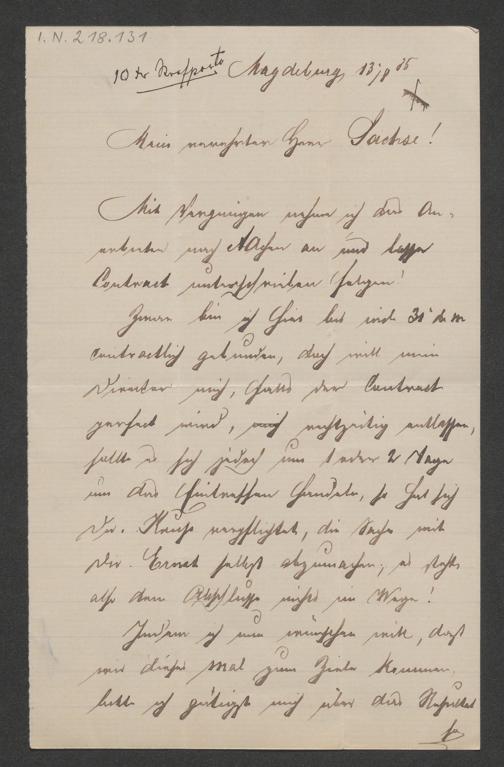 I. N. 218.131
10 kr Strafporto
Magdeburg, 13/8 85
Mein verehrter Herr Sachse!
Mit Vergnügen nehme ich das An-
erbieten nach Aachen an und lasse
Contract unterschrieben folgen!
Zwar bin ich hier bis incl. 31 d. M
contractlich gebunden, doch will mein
Director mich, falls der Contract
perfect wird, rechtzeitig entlassen,
sollte es sich jedoch um 1 oder 2 Tage
um das Eintreffen handeln, so hat sich
Dir. verpflichtet, die Sache mit
Dir. Ernst selbst abzumachen; es steht
also dem Abschlusse nichts im Wege!
Indem ich nun wünschen will, daß
wir dieses Mal zum Ziele kommen,
bitte ich gütigst mich über das Resultat